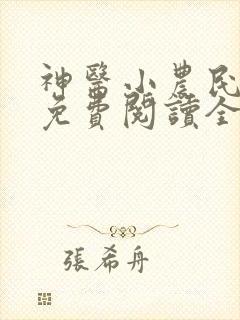 神醫小農民
免費閱讀全
張希舟